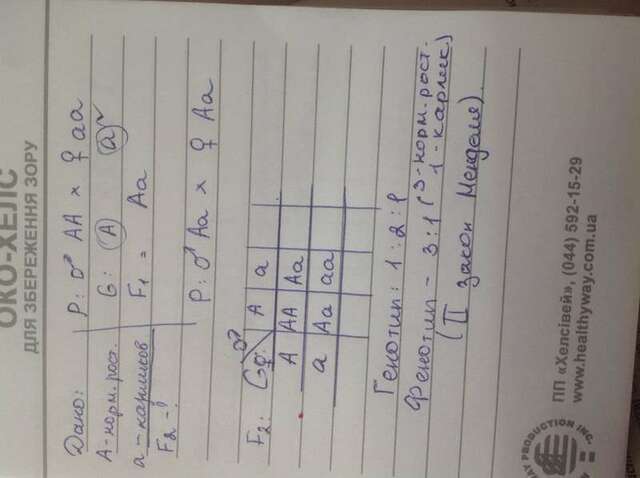 ОКО-ХЕЛС
ДЛЯ ЗБЕРЕЖЕННЯ ЗОРУ
Дано:
А-норм.рост.
а-карликов
F2-?
Р: ♂ АА × ♀ аа
G: А а
F1 = Аа
Р: ♂ Аа × ♀ Аа
F2:
G♀ ♂ А а
А АА Аа
а Аа аа
Генотип: 1:2:1
Фенотип - 3:1 (3-норм.рост.
1-карлик.)
(II закон Менделя).
ПП «Хелсівей», (044) 592-15-29
www.healthyway.com.ua
AY PRODUCTION INC.